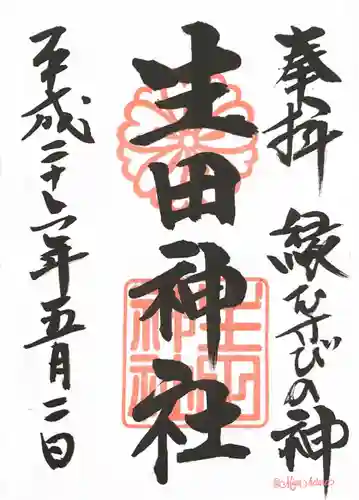 奉拝 縁むすびの神
生田神社
平成二十六年五月二日
生田神社